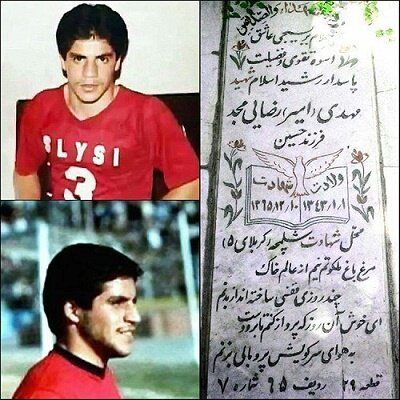 LYSI
3
عاشق
اسوه تقوی و فضیلت
پاسدار رشید اسلام شهید
مهدی (امیر) رضایی مجد
فرزند حسین
ولادت شهادت
۱۳۴۳/۱/۱ ۱۳۶۵/۱۲/۱۰
محل شهادت شلمچه (کربلای ۵)
مرغ باغ ملکوتم نیم از عالم خاک
چند روزی قفسی ساخته اند از بدنم
ای خوش آن روز که پرواز کنم تا بر دوست
به هوای سر کویش پر و بالی بزنم
قطعه ۲۹ ردیف ۶۵ شماره ۷